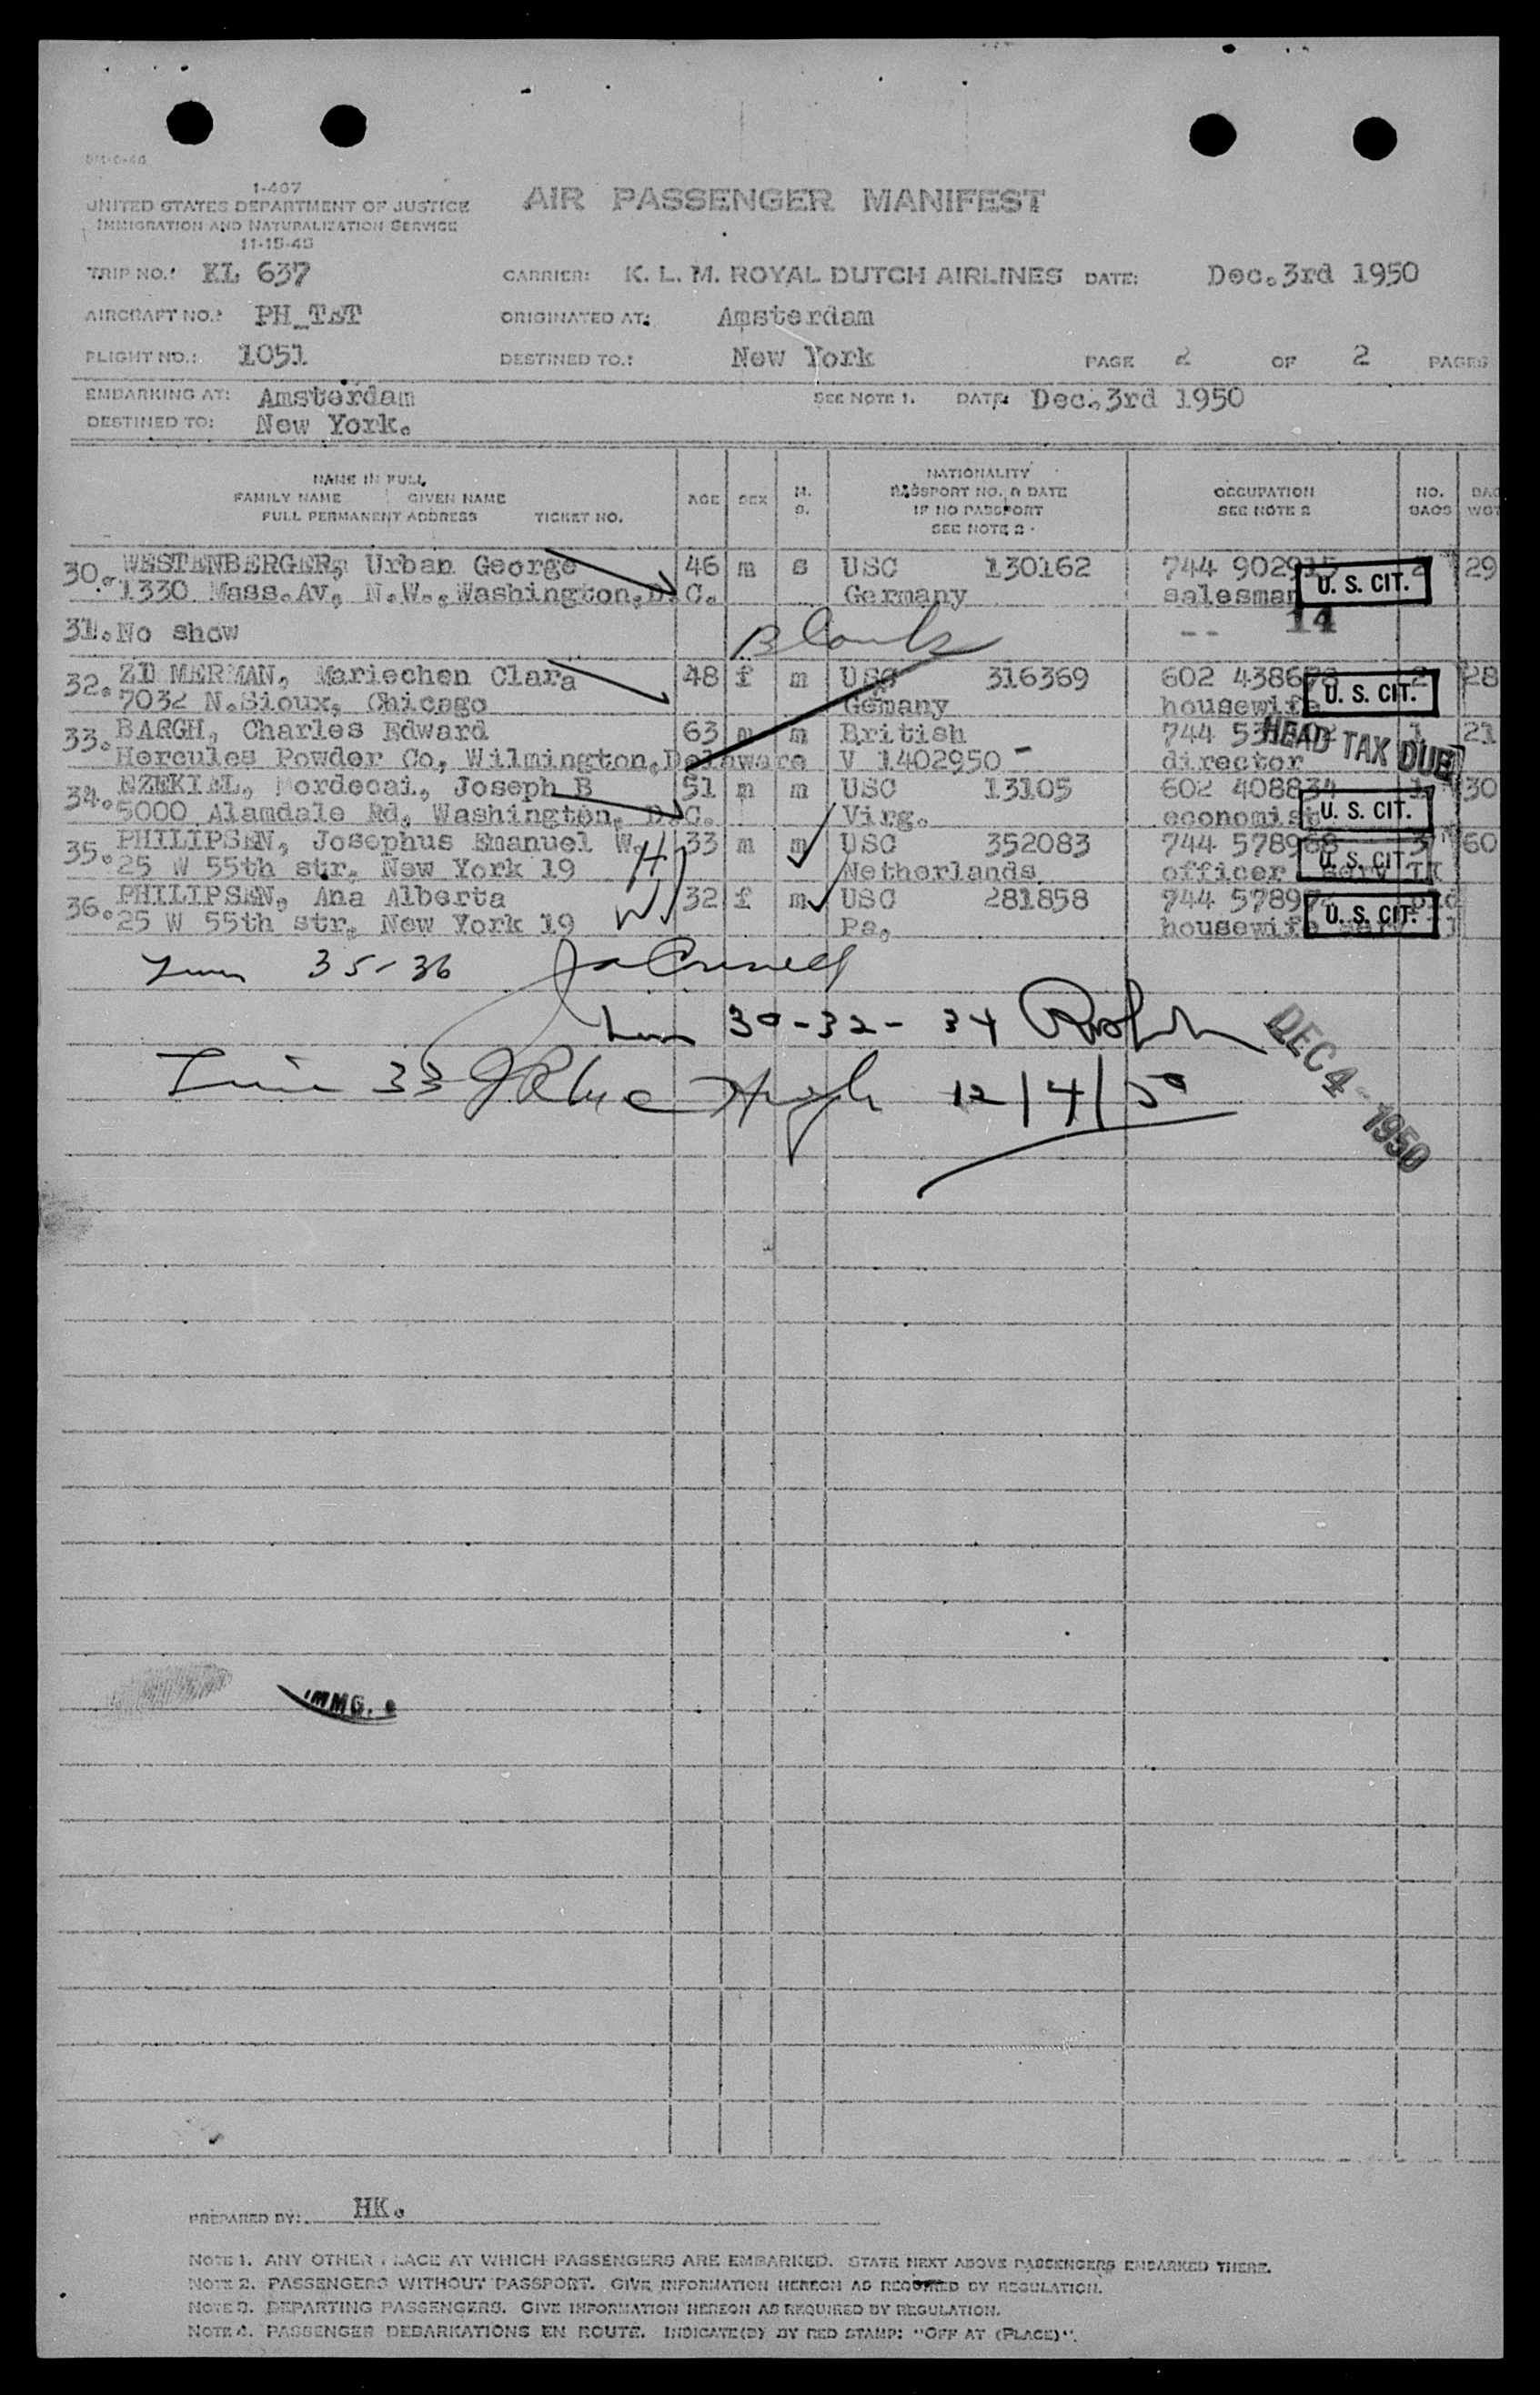 1-407
UNITED STATES DEPARTMENT OF JUSTICE
IMMIGRATION AND NATURALIZATION SERVICE
11-15-45
AIR PASSENGER MANIFEST
TRIP NO.: KL 637 CARRIER: K. L. M. ROYAL DUTCH AIRLINES DATE: Dec.3rd 1950
AIRCRAFT NO.: ORIGINATED AT: Amsterdam
FLIGHT NO.: 1051 DESTINED TO.: New York PAGE 2 OF 2 PAGES
EMBARKING AT: Amsterdam SEE NOTE 1. DATE: Dec.3rd 1950
DESTINED TO: New York.
NAME IN FULL
FAMILY NAME GIVEN NAME
FULL PERMANENT ADDRESS TICKET NO.
AGE SEX M. S.
NATIONALITY
PASSPORT NO. & DATE
IF NO PASSPORT
SEE NOTE 2
OCCUPATION
SEE NOTE 2
NO. BAGS
30. WESTENBERGER, Urban George 46 m s USC 130162 744 29
1330 Mass.Av, N.W., Washington,D.C. Germany salesman U. S. CIT.
31. No show Blank -- 14
32. ZIMMERMAN, Mariechen Clara 48 f m USC 316369 602 2 28
7032 N.Sioux, Chicago Gemany housewife U. S. CIT.
33. BARGH, Charles Edward 63 m m British 744 1 21
Hercules Powder Co, Wilmington,Delaware V 1402950 director HEAD TAX DUE
34. EZEKIEL, Mordecai, Joseph B 51 m m USC 13105 602 408834 30
5000 Alamdale Rd, Washington, D.C. Virg. economist U. S. CIT.
35. PHILIPSEN, Josephus Emanuel W. H 33 m m USC 352083 744 60
25 W 55th str. New York 19 Netherlands officer U. S. CIT.
36. PHILIPSEN, Ana Alberta W 32 f m USC 281858 744
25 W 55th str. New York 19 Pa, housewife U. S. CIT.
35-36
30-32-34
33 12/4/50
DEC 4 - 1950
IMMG.
PREPARED BY: HK.
NOTE 1. ANY OTHER PLACE AT WHICH PASSENGERS ARE EMBARKED. STATE NEXT ABOVE PASSENGERS EMBARKED THERE.
NOTE 2. PASSENGERS WITHOUT PASSPORT. GIVE INFORMATION HEREON AS REQUIRED BY REGULATION.
NOTE 3. DEPARTING PASSENGERS. GIVE INFORMATION HEREON AS REQUIRED BY REGULATION.
NOTE 4. PASSENGER DEBARKATIONS EN ROUTE. INDICATE(D) BY RED STAMP: "OFF AT (PLACE)".